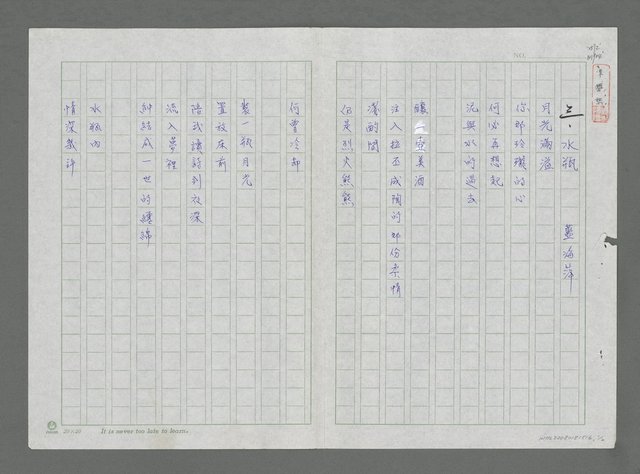 三、水瓶　藍海萍
月光滿溢
你那玲瓏的心
何必再想起
泥與水的過去
釀一壺美酒
注入拉丕成陶的那份柔情
淺酌間
仍是烈火熊熊
何曾冷却
裝一瓶月光
置放床前
陪我讀詩到夜深
流入夢裡
糾結成一世的纏綿
水瓶內
情深幾許
NO.
20×20
It is never too late to learn.